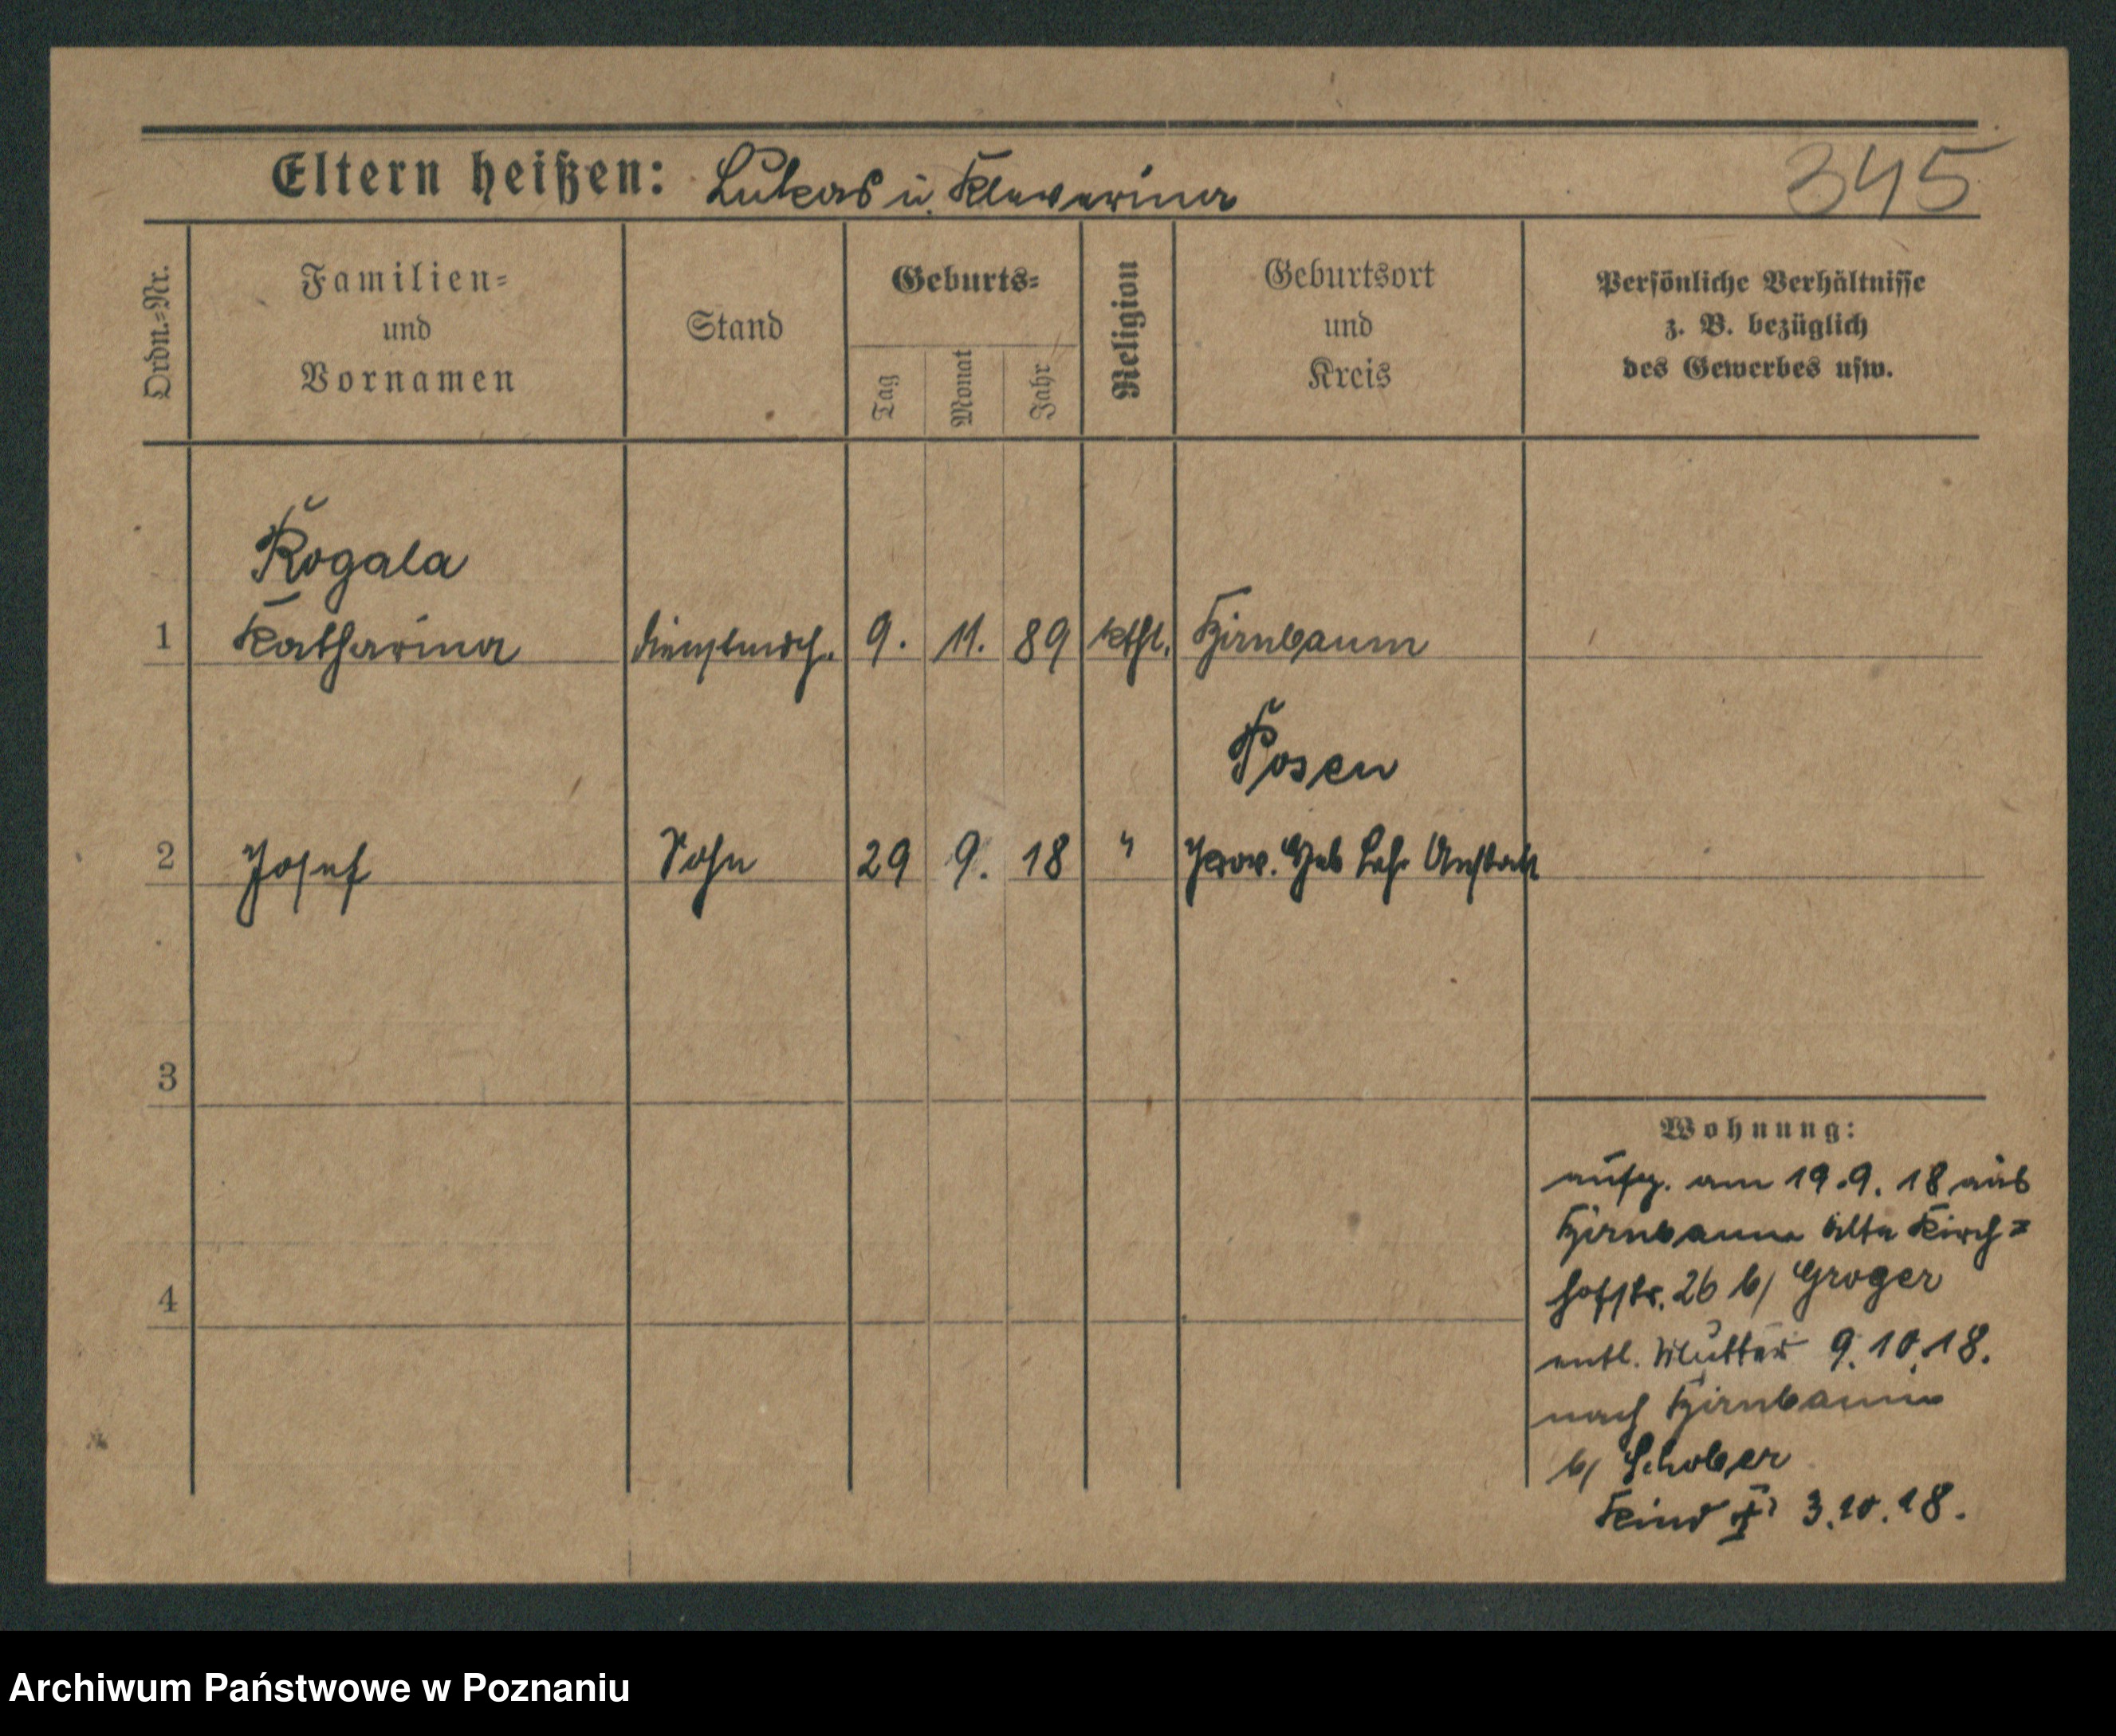 Eltern heißen: Lukas u.
345
Ordn.=Nr.
Familien=
und
Vornamen
Stand
Geburts=
Tag
Monat
Jahr
Religion
Geburtsort
und
Kreis
Persönliche Verhältnisse
z. B. bezüglich
des Gewerbes usw.
Rogala
1 Katharina Dienstmdch. 9. 11. 89 kthl. Birnbaum
Posen
2 Josef Sohn 29 9. 18 " Prov. Heb Lehr Anstalt
3
4
Wohnung:
aufg. am 19.9.18 aus
Birnbaum Alte Kirch=
hofstr. 26 b/ Groger
entl. Mutter 9.10.18.
nach Birnbaum
b/ Schober
Kind 3.10.18.
Archiwum Państwowe w Poznaniu